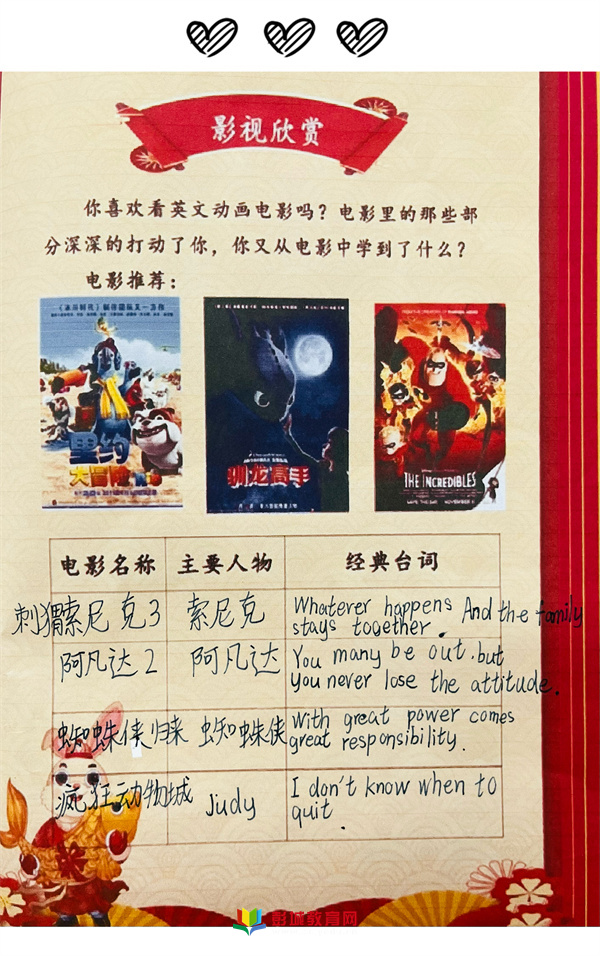 影视欣赏
你喜欢看英文动画电影吗？电影里的那些部
分深深的打动了你，你又从电影中学到了什么？
电影推荐：
里约
大冒险
驯龙高手
THE INCREDIBLES
电影名称 主要人物 经典台词
刺猬索尼克3 索尼克 Whatever happens And the family
stays together.
阿凡达2 阿凡达 You many be out.but
you never lose the attitude.
蜘蛛侠归来 蜘蛛侠 With great power comes
great responsibility.
疯狂动物城 Judy I don't know when to
quit.
彭城教育网